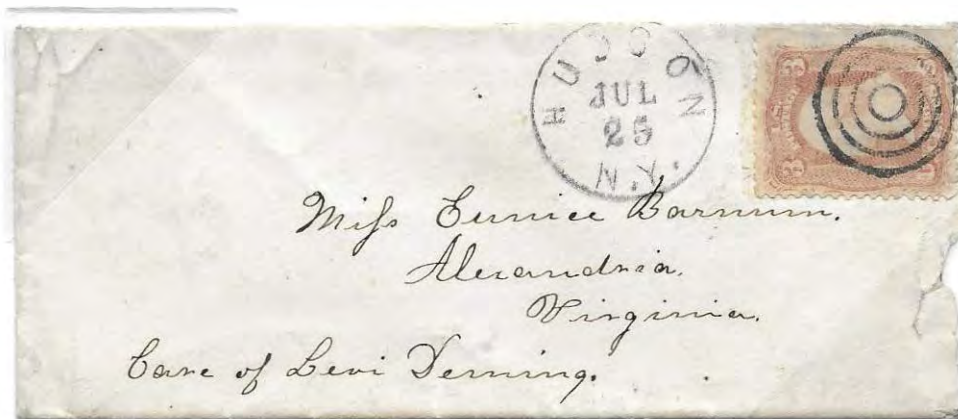 HUDSON
JUL
25
N.Y.
3 3
Miss Eunice Barnum.
Alexandria.
Virginia.
Care of Levi Deming.